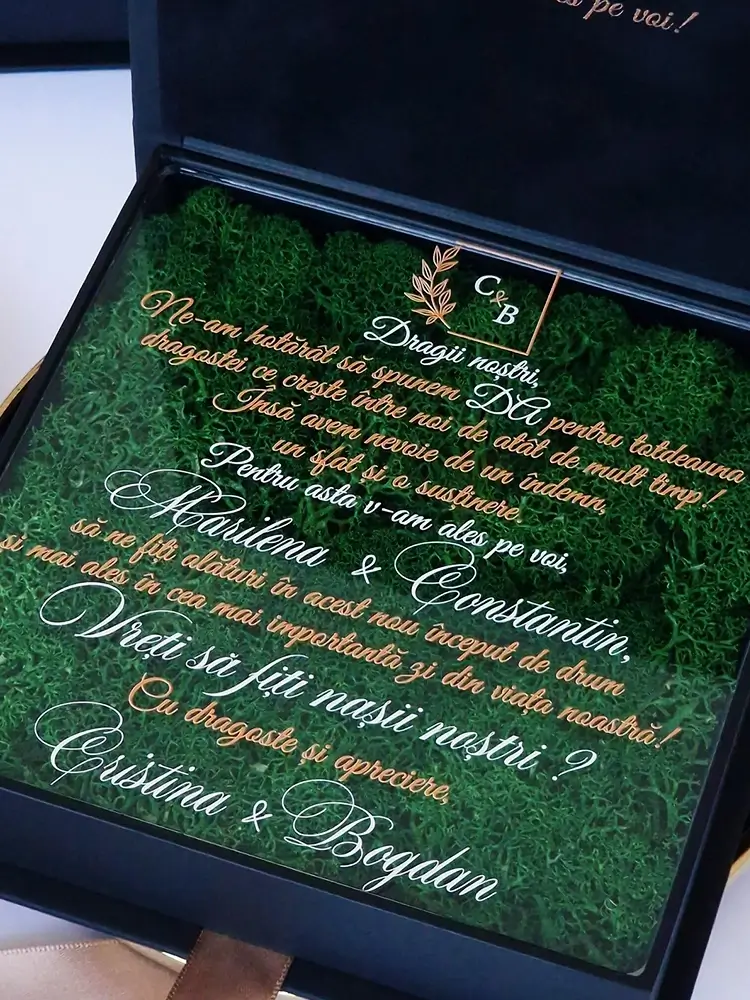 pe voi!
C
&
B
Dragii noștri,
Ne-am hotărât să spunem DA pentru totdeauna
dragostei ce crește între noi de atât de mult timp!
Însă avem nevoie de un îndemn,
un sfat și o susținere.
Pentru asta v-am ales pe voi,
Marilena & Constantin,
să ne fiți alături în acest nou început de drum
și mai ales în cea mai importantă zi din viața noastră!
Vreți să fiți nașii noștri ?
Cu dragoste și apreciere,
Cristina & Bogdan